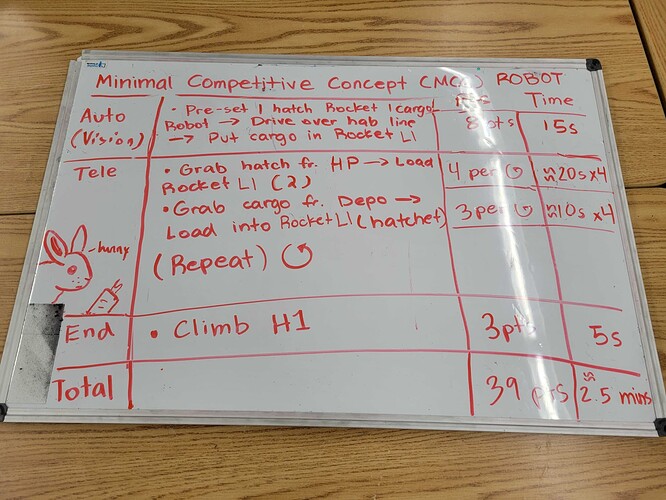 Minimal Competitive Concept (MCC) ROBOT
Time
Auto
(Vision)
• Pre-set 1 hatch Rocket 1 cargo
Robot → Drive over hab line
→ Put cargo in Rocket L1
8 pts
15s
Tele
• Grab hatch fr. HP → Load
Rocket L1 (2)
4 per ↺
≈20s x4
• Grab cargo fr. Depo →
Load into Rocket L1 (hatchet)
3 per ↺
≈10s x4
(Repeat) ↺
- bunny
End
• Climb H1
3pts
5s
Total
39 pts
≈ 2.5 mins